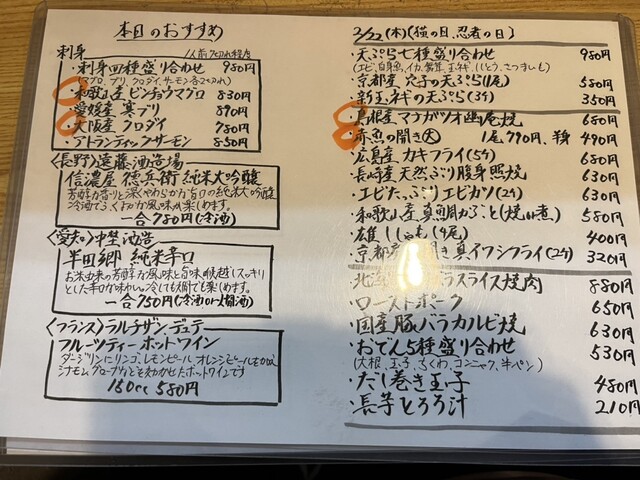 本日のおすすめ
刺身 1人前7切れ程度
・刺身四種盛り合わせ 980円
(マグロ、ブリ、クロダイ、サーモン各2切れ)
・和歌山産 ビンチョウマグロ 830円
・愛媛産 寒ブリ 890円
・大阪産 クロダイ 780円
・アトランティックサーモン 850円
〈長野〉遠藤酒造場
信濃屋 徳兵衛 純米大吟醸
芳醇な香りと深くやわらかな旨口の純米大吟醸
冷酒でふくよかな風味が楽しめます。
一合780円(冷酒)
〈愛知〉中埜酒造
半田郷 純米辛口
お米由来の芳醇な風味と旨味、喉越しスッキリ
とした辛口が味わい。冷しても燗でも楽しめます。
一合750円(冷酒or燗酒)
〈フランス〉ラルチザン、デュテ
フルーツティーホットワイン
ダージリンにリンゴ、レモンピール、オレンジピールをかわえ
シナモン、グローブなどを効かせたホットワインです
150cc 580円
2/22(木)(猫の日、忍者の日)
・天ぷら七種盛り合わせ 980円
・京都産 穴子の天ぷら(1尾) 580円
・新玉ネギの天ぷら(3ケ) 350円
・島根産 マナガツオ幽庵焼 680円
・赤魚の開き 1尾790円、半身 490円
・広島産 カキフライ(5ケ) 680円
・長崎産 天然ぶり腹身照焼 630円
・エビたっぷりエビカツ(2ケ) 630円
・和歌山産 真鯛かぶと(焼or煮) 580円
・雄ししゃも(4尾) 400円
・京都産 開き真イワシフライ(2ケ) 320円
ラスライス焼肉 880円
・ローストポーク 650円
・国産豚バラカルビ焼 630円
・おでん5種盛り合わせ 530円
(大根、玉子、ちくわ、コンニャク、半ペン)
・だし巻き玉子 480円
・長芋とろろ汁 210円